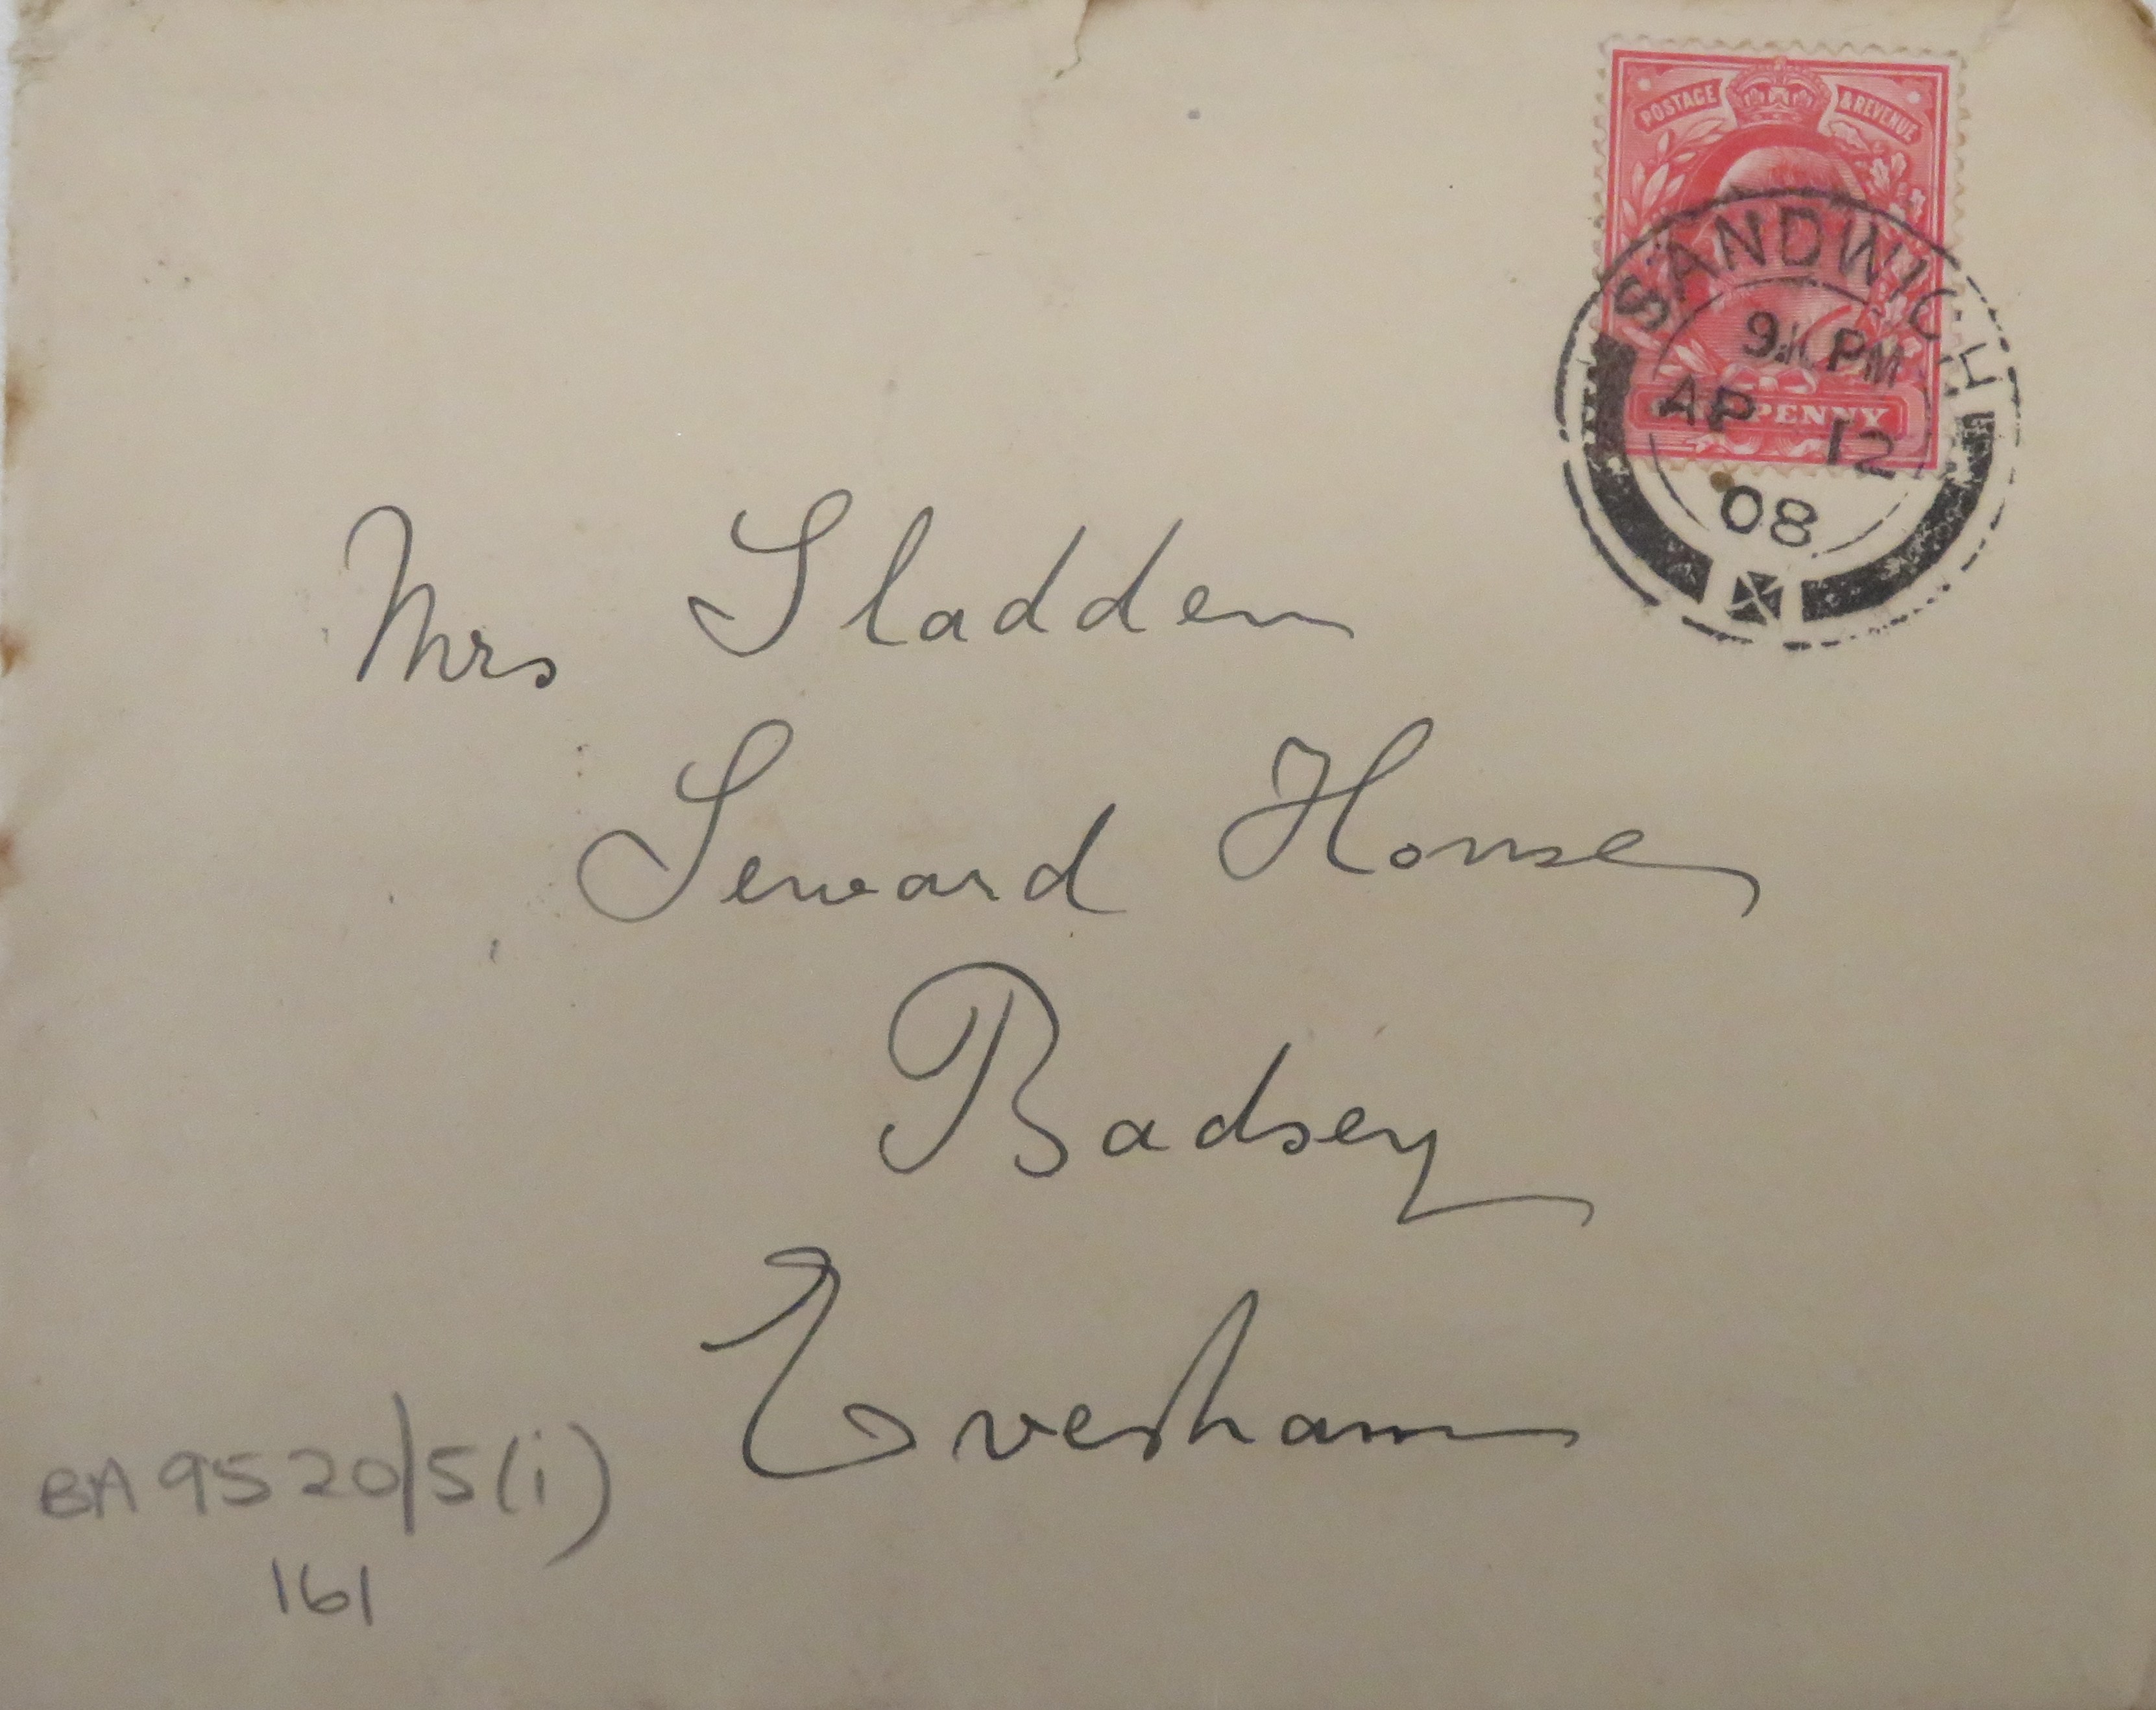 POSTAGE & REVENUE
SANDWICH
PM
AP 12
PENNY
08
Mrs Sladden
Seward House
Badsey
Evesham
BA 9520/5(i)
161